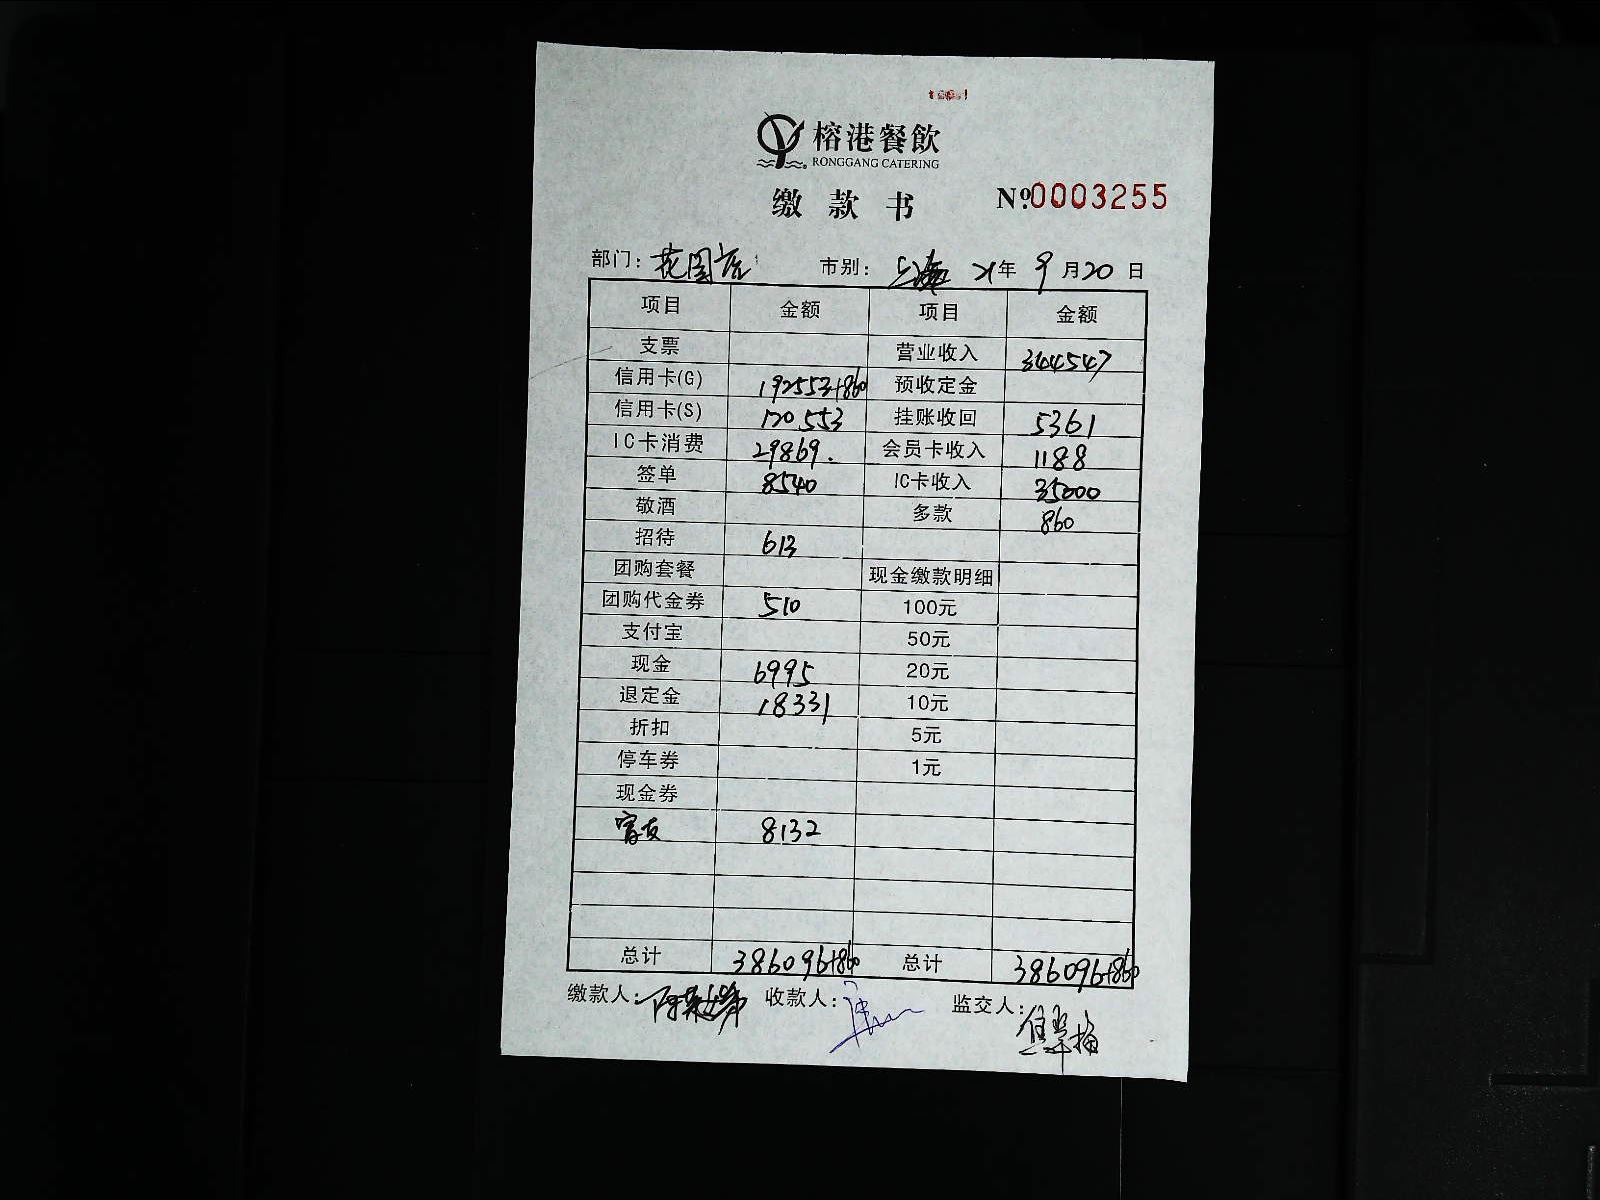 榕港餐飲
RONGGANG CATERING
缴款书 №0003255
部门: 花园店 市别: 上海 21年 9月20日
项目 金额 项目 金额
支票 营业收入 344547
信用卡(G) 192553+860 预收定金
信用卡(S) 120553 挂账收回 5361
IC卡消费 29869. 会员卡收入 1188
签单 8540 IC卡收入 35000
敬酒 多款 860
招待 613
团购套餐 现金缴款明细
团购代金券 510 100元
支付宝 50元
现金 6995 20元
退定金 18331 10元
折扣 5元
停车券 1元
现金券
富友 8132
总计 386096+860 总计 386096+860
缴款人: 收款人: 监交人: